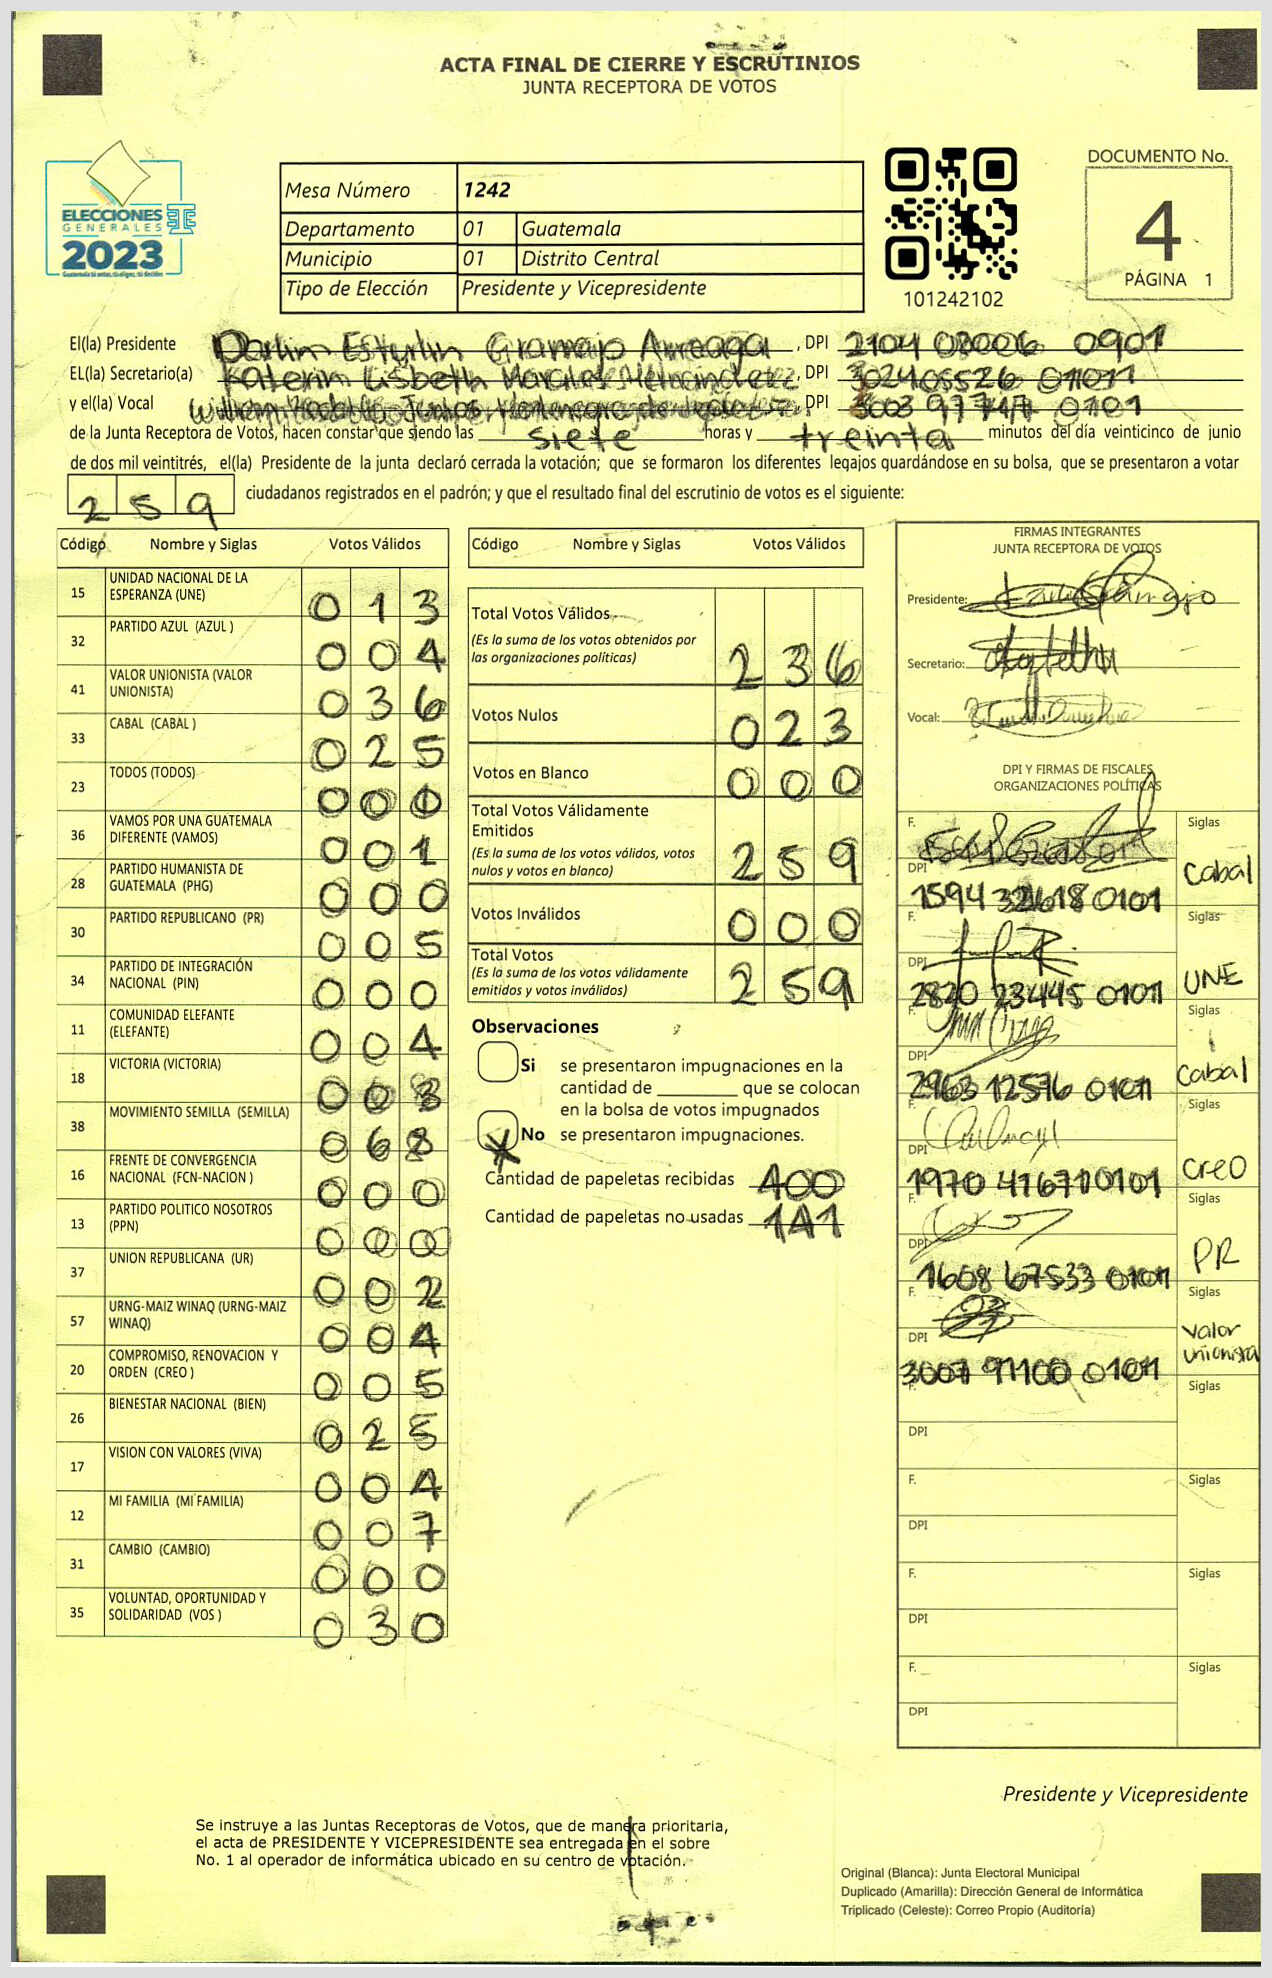 ACTA FINAL DE CIERRE Y ESCRUTINIOS
JUNTA RECEPTORA DE VOTOS
ELECCIONES
GENERALES
2023
Mesa Número 1242
Departamento 01 Guatemala
Municipio 01 Distrito Central
Tipo de Elección Presidente y Vicepresidente
101242102
DOCUMENTO No.
4
PÁGINA 1
El(la) Presidente Darlin Estyrlin Gramajo Arreaga , DPI 2104 0901
EL(la) Secretario(a) Katerin Lisbeth , DPI
y el(la) Vocal , DPI 3003 0101
de la Junta Receptora de Votos, hacen constar que siendo las siete horas y treinta minutos del día veinticinco de junio
de dos mil veintitrés, el(la) Presidente de la junta declaró cerrada la votación; que se formaron los diferentes legajos quardándose en su bolsa, que se presentaron a votar
259 ciudadanos registrados en el padrón; y que el resultado final del escrutinio de votos es el siguiente:
Código Nombre y Siglas Votos Válidos
15 UNIDAD NACIONAL DE LA ESPERANZA (UNE) 013
32 PARTIDO AZUL (AZUL ) 004
41 VALOR UNIONISTA (VALOR UNIONISTA) 036
33 CABAL (CABAL ) 025
23 TODOS (TODOS) 00
36 VAMOS POR UNA GUATEMALA DIFERENTE (VAMOS) 001
28 PARTIDO HUMANISTA DE GUATEMALA (PHG) 000
30 PARTIDO REPUBLICANO (PR) 005
34 PARTIDO DE INTEGRACIÓN NACIONAL (PIN) 000
11 COMUNIDAD ELEFANTE (ELEFANTE) 004
18 VICTORIA (VICTORIA) 003
38 MOVIMIENTO SEMILLA (SEMILLA) 068
16 FRENTE DE CONVERGENCIA NACIONAL (FCN-NACION ) 000
13 PARTIDO POLITICO NOSOTROS (PPN) 000
37 UNION REPUBLICANA (UR) 002
57 URNG-MAIZ WINAQ (URNG-MAIZ WINAQ) 004
20 COMPROMISO, RENOVACION Y ORDEN (CREO ) 005
26 BIENESTAR NACIONAL (BIEN) 025
17 VISION CON VALORES (VIVA) 004
12 MI FAMILIA (MI FAMILIA) 007
31 CAMBIO (CAMBIO) 000
35 VOLUNTAD, OPORTUNIDAD Y SOLIDARIDAD (VOS ) 030
Código Nombre y Siglas Votos Válidos
Total Votos Válidos 236
(Es la suma de los votos obtenidos por las organizaciones políticas)
Votos Nulos 023
Votos en Blanco 000
Total Votos Válidamente Emitidos 259
(Es la suma de los votos válidos, votos nulos y votos en blanco)
Votos Inválidos 000
Total Votos 259
(Es la suma de los votos válidamente emitidos y votos inválidos)
Observaciones
Si se presentaron impugnaciones en la
cantidad de ________ que se colocan
en la bolsa de votos impugnados
X No se presentaron impugnaciones.
Cantidad de papeletas recibidas 400
Cantidad de papeletas no usadas 141
FIRMAS INTEGRANTES
JUNTA RECEPTORA DE VOTOS
Presidente:
Secretario:
Vocal:
DPI Y FIRMAS DE FISCALES
ORGANIZACIONES POLÍTICAS
F. Siglas
DPI 1594 0101 Cabal
F. Siglas
DPI 2820 23445 0101 UNE
F. Siglas
DPI 2963 12576 0101 Cabal
F. Siglas
DPI 1970 41671 0101 CREO
F. Siglas
DPI 1608 67533 0101 PR
F. Siglas
DPI 3007 91100 0101 Valor Unionista
F. Siglas
DPI
F. Siglas
DPI
F. Siglas
DPI
F. Siglas
DPI
Presidente y Vicepresidente
Se instruye a las Juntas Receptoras de Votos, que de manera prioritaria,
el acta de PRESIDENTE Y VICEPRESIDENTE sea entregada en el sobre
No. 1 al operador de informática ubicado en su centro de votación.
Original (Blanca): Junta Electoral Municipal
Duplicado (Amarilla): Dirección General de Informática
Triplicado (Celeste): Correo Propio (Auditoría)